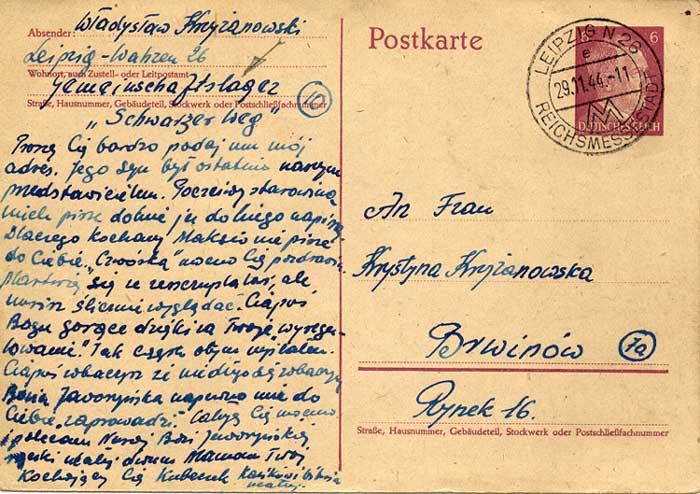 Absender: Władysław Krzyżanowski
Leipzig-Wahren 26
Wohnort, auch Zustell- oder Leitpostamt
Gemeinschaftslager
Straße, Hausnummer, Gebäudeteil, Stockwerk oder Postschließfachnummer
„Schwarzer Weg"
Proszę Cię bardzo podaj mu mój
adres. Jego syn był ostatnio naszym
przedstawicielem. Poczciwy
pisze do mnie ja do niego
Dlaczego kochany Maksio nie pisze
do Ciebie. mocno Cię pozdrawia
się że ale
musisz ślicznie wyglądać. Ciapuś
Bogu gorące dzięki za Twoje
Tak często o tym myślałem.
Ciapuś zobaczysz że niedługo się zobaczymy
Bozia Jaworzyńska napewno mnie do
Ciebie zaprowadzi. Całuję Cię mocno
i polecam Naszej Bozi Jaworzyńskiej
rączki całuj dwum Mamom Twój
kochający Cię Kubecek
Postkarte
6
LEIPZIG N 26
e
29.11.44.-11
M
REICHSMESSESTADT
DEUTSCHES REICH
An Frau
Krystyna Krzyżanowska
Brwinów
7a
Rynek 16.
Straße, Hausnummer, Gebäudeteil, Stockwerk oder Postschließfachnummer